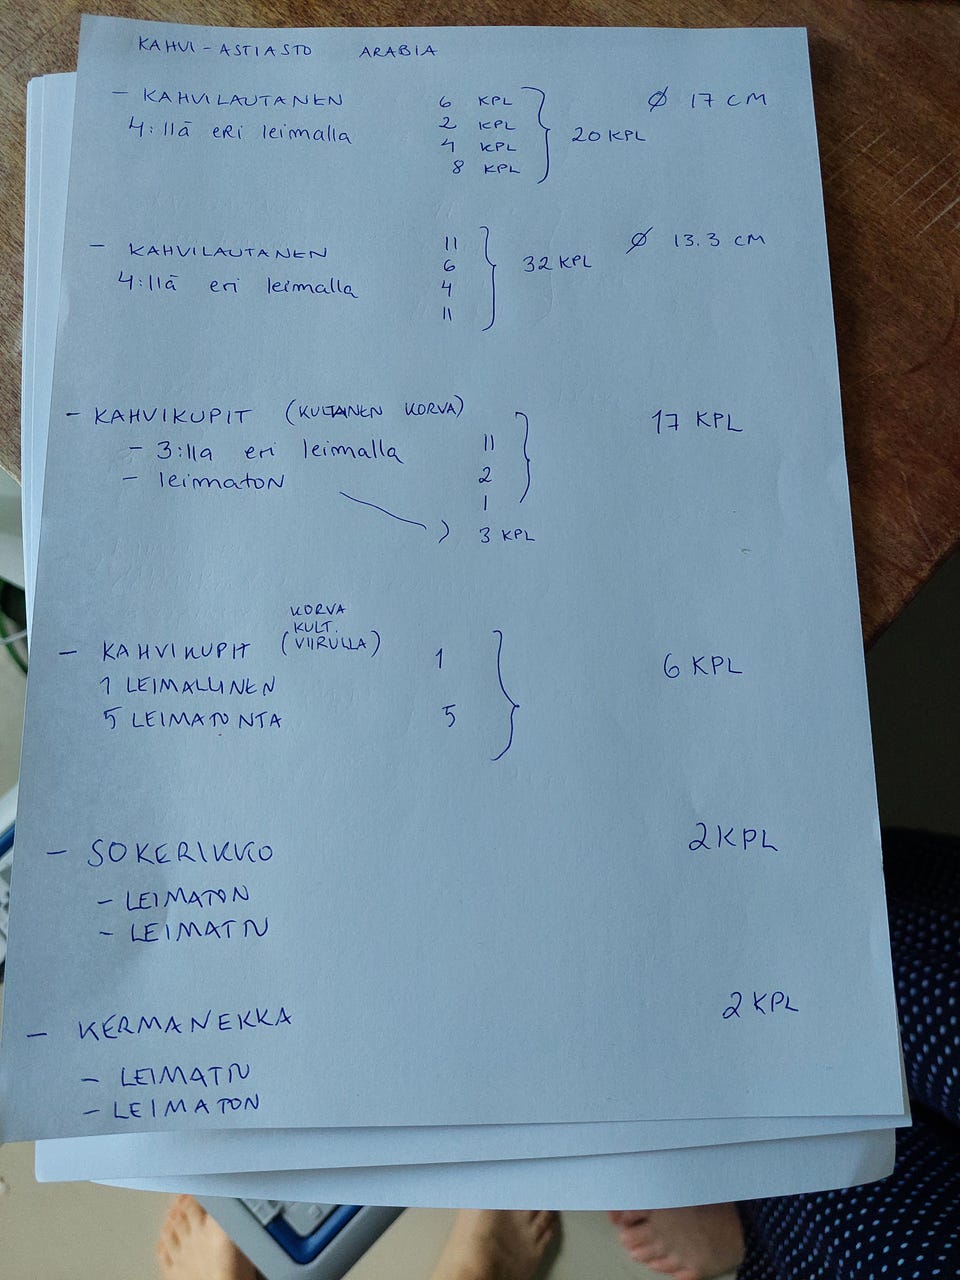 KAHVI-ASTIASTO ARABIA
- KAHVILAUTANEN 6 KPL Ø 17 CM
4:llä eRi leimalla 2 KPL 20 KPL
4 KPL
8 KPL
- KAHVILAUTANEN 11 Ø 13.3 CM
4:llä eri leimalla 6 32 KPL
4
11
- KAHVIKUPIT (KULTAINEN KORVA) 17 KPL
- 3:lla eri leimalla 11
- leimaton 2
1
3 KPL
KORVA
KULT.
- KAHVIKUPIT (VIIRULLA) 1 6 KPL
1 LEIMALLINEN
5 LEIMATONTA 5
- SOKERIKKO 2 KPL
- LEIMATON
- LEIMATTU
- KERMANEKKA 2 KPL
- LEIMATTU
- LEIMATON